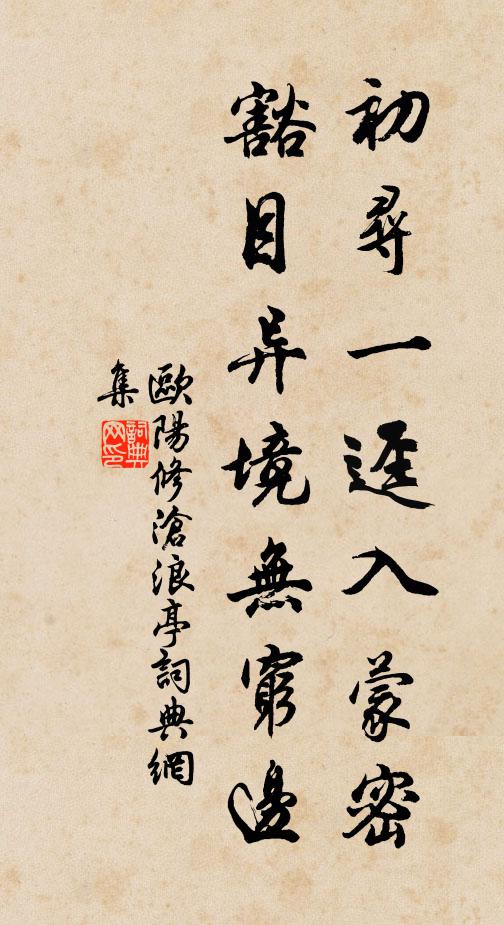 初尋一逕入蒙密
豁目异境無窮邊
歐陽修滄浪亭詞典網
集
詞典
网印